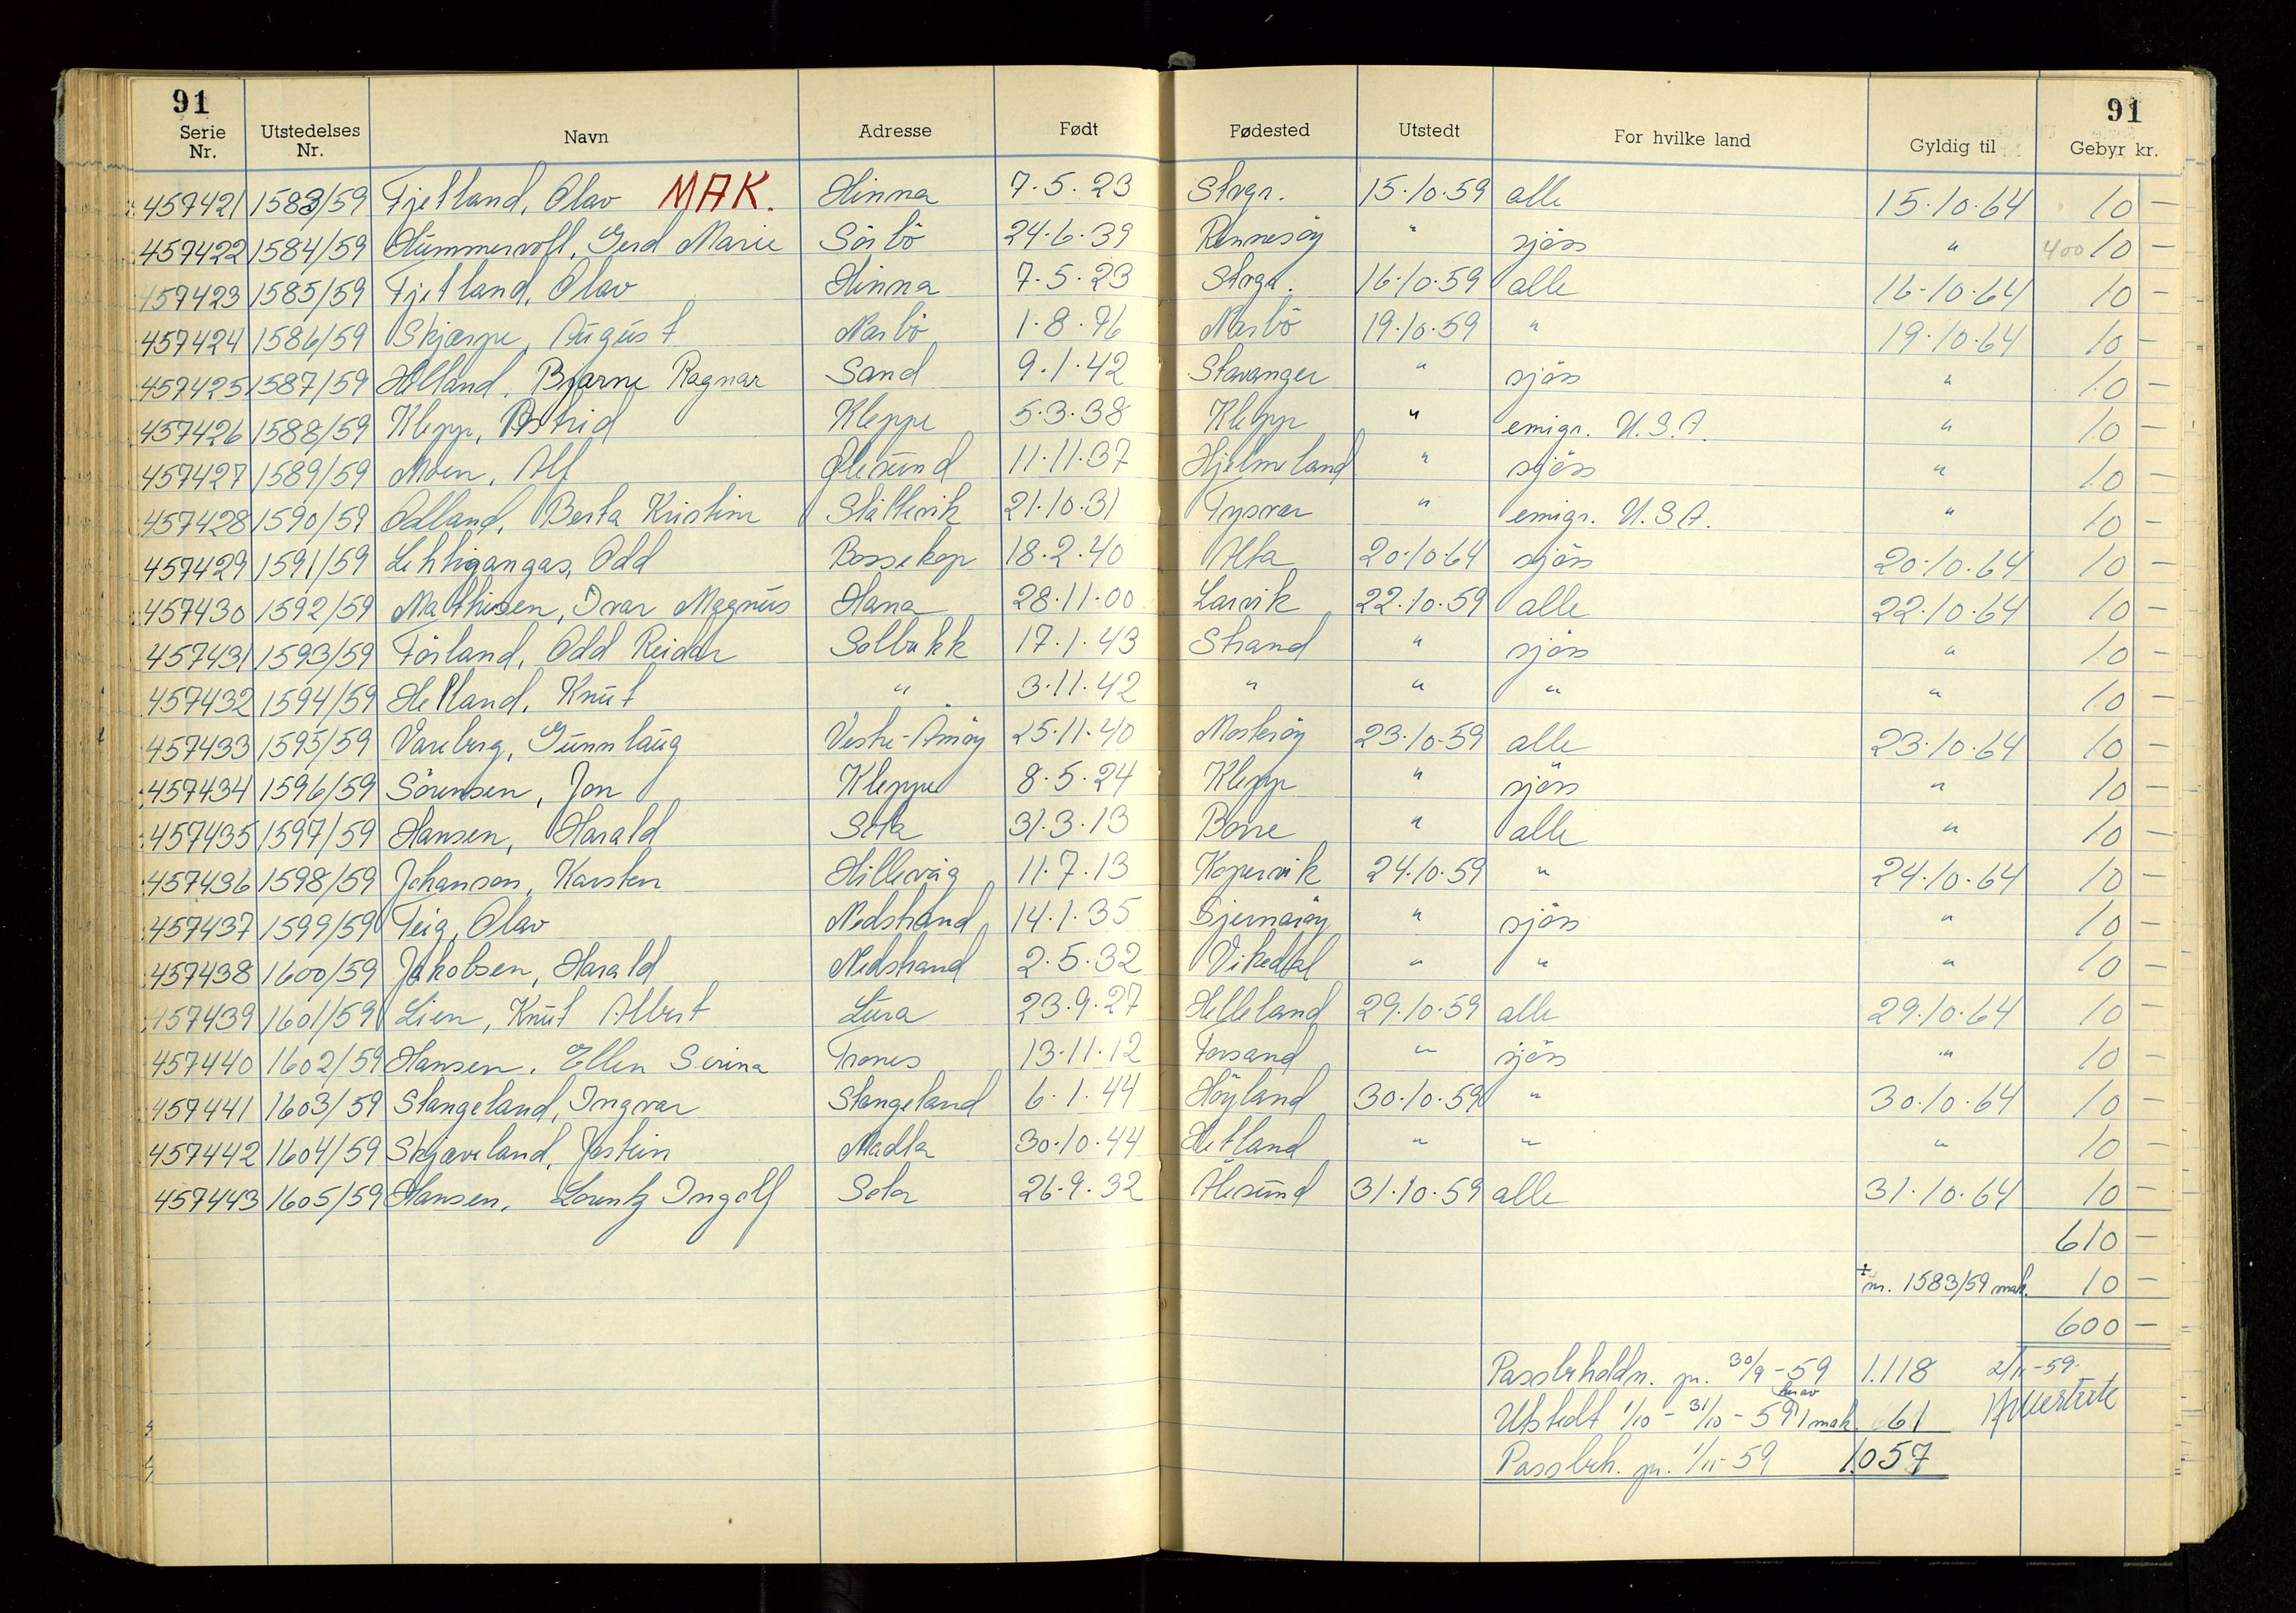 91 91
Serie Nr. Utstedelses Nr. Navn Adresse Født Fødested Utstedt For hvilke land Gyldig til Gebyr kr.
457421 1583/59 Fjetland, Olav MAK. Hinna 7.5.23 Stvgr. 15.10.59 alle 15.10.64 10 —
457422 1584/59 Hummervoll, Gerd Marie Sörbö 24.6.39 Rennesöy " sjöss " 400 10 —
457423 1585/59 Fjetland, Olav Hinna 7.5.23 Stvgr. 16.10.59 alle 16.10.64 10 —
457424 1586/59 Skjærpe, August Narbö 1.8.96 Narbö 19.10.59 " 19.10.64 10 —
457425 1587/59 Helland, Bjarne Ragnar Sand 9.1.42 Stavanger " sjöss " 10 —
457426 1588/59 Klepp, Astrid Kleppe 5.3.38 Klepp " emigr. U.S.A. " 10 —
457427 1589/59 Moen, Alf Ølesund 11.11.37 Hjelmeland " sjöss " 10 —
457428 1590/59 Odland, Berta Kristine Slåttevik 21.10.31 Tysvar " emigr. U.S.A. " 10 —
457429 1591/59 Lehtigangas, Odd Bossekop 18.2.40 Alta 20.10.64 sjöss 20.10.64 10 —
457430 1592/59 Mathisen, Ivar Magnus Hana 28.11.00 Larvik 22.10.59 alle 22.10.64 10 —
457431 1593/59 Förland, Odd Reidar Solbakk 17.1.43 Strand " sjöss " 10 —
457432 1594/59 Helland, Knut " 3.11.42 " " " " 10 —
457433 1595/59 Vareberg, Gunnlaug Vestre-Åmöy 25.11.40 Mosteröy 23.10.59 alle 23.10.64 10 —
457434 1596/59 Sörensen, Jon Kleppe 8.5.24 Klepp " sjöss " 10 —
457435 1597/59 Hansen, Harald Sola 31.3.13 Borre " alle " 10 —
457436 1598/59 Johanson, Karsten Hillevåg 11.7.13 Kopervik 24.10.59 " 24.10.64 10 —
457437 1599/59 Teig, Olav Nedstrand 14.1.35 Sjernaröy " sjöss " 10 —
457438 1600/59 Jakobsen, Harald Nedstrand 2.5.32 Vikedal " " " 10 —
457439 1601/59 Lien, Knut Albert Lura 23.9.27 Helleland 29.10.59 alle 29.10.64 10 —
457440 1602/59 Hansen, Ellen Serina Trones 13.11.12 Forsand " sjöss " 10 —
457441 1603/59 Stangeland, Ingvar Stangeland 6.1.44 Höyland 30.10.59 " 30.10.64 10 —
457442 1604/59 Skjæveland, Jostein Madla 30.10.44 Hetland " " " 10 —
457443 1605/59 Hansen, Lorentz Ingolf Sola 26.9.32 Ålesund 31.10.59 alle 31.10.64 10 —
610 —
÷ nr. 1583/59 mak. 10 —
600 —
Passbeholdn. pr. 30/9-59 1.118 2/11-59.
Utstedt 1/10 - 31/10 - 59 herav 1 mak. 61
Passbeh. pr. 1/11-59 1.057